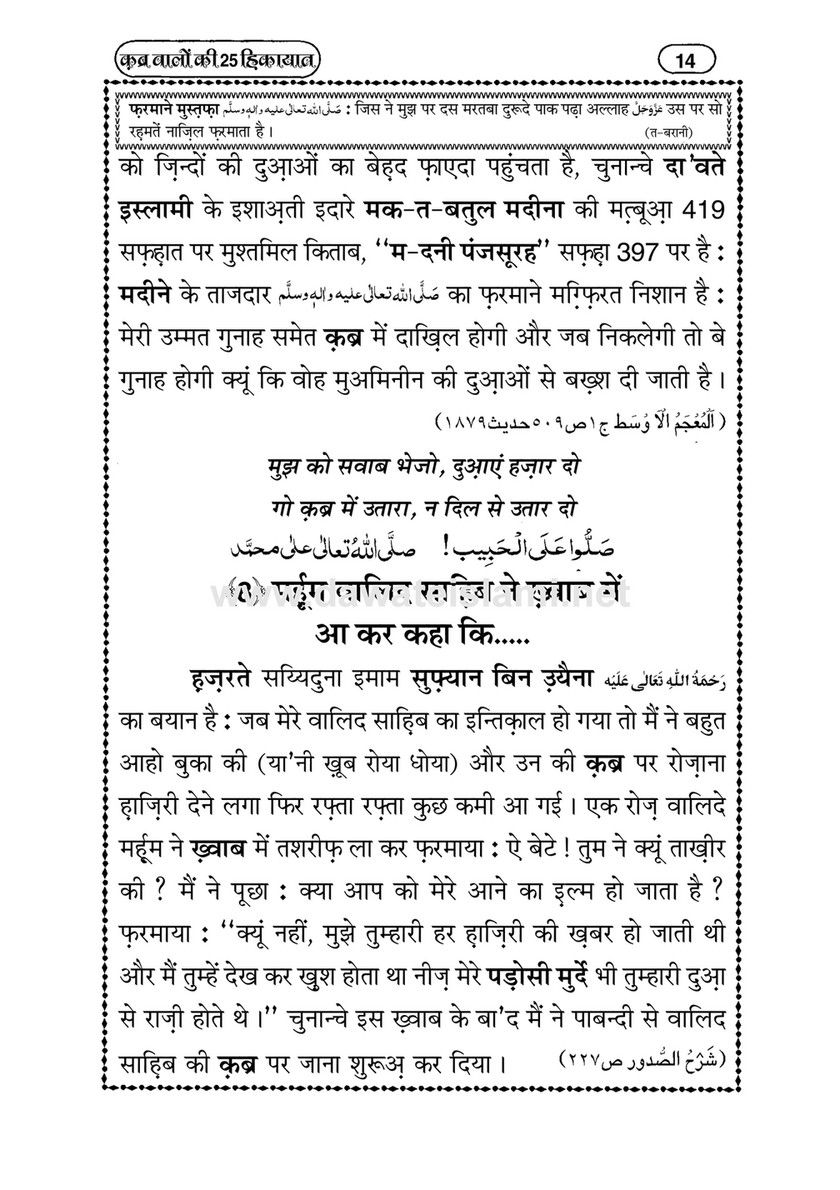 क़ब्र वालों की 25 हिकायात
14
फ़रमाने मुस्तफ़ा صَلَّى اللهُ تعالى عليه واله وسلَّم : जिस ने मुझ पर दस मरतबा दुरूदे पाक पढ़ा अल्लाह عَزَّوَجَلَّ उस पर सो
रहमतें नाज़िल फ़रमाता है । (त-बरानी)
को ज़िन्दों की दुआ़ओं का बेह़द फ़ाएदा पहुंचता है, चुनान्चे दा'वते
इस्लामी के इशाअ़ती इदारे मक-त-बतुल मदीना की मत़्बूआ़ 419
सफ़ह़ात पर मुश्तमिल किताब, ‘‘म-दनी पंजसूरह’’ सफ़ह़ा 397 पर है :
मदीने के ताजदार صَلَّى الله تعالى عليه واله وسلَّم का फ़रमाने मग़्फ़िरत निशान है :
मेरी उम्मत गुनाह समेत क़ब्र में दाख़िल होगी और जब निकलेगी तो बे
गुनाह होगी क्यूं कि वोह मुअमिनीन की दुआ़ओं से बख़्श दी जाती है ।
(اَلْمُعْجَمُ الْاَوْسَط ج ١ ص ٥٠٩ حديث ١٨٧٩)
मुझ को सवाब भेजो, दुआ़एं हज़ार दो
गो क़ब्र में उतारा, न दिल से उतार दो
صَلُّوا عَلَى الْحَبِيب! صلَّى اللهُ تعالى على محمَّد
﴾8﴿ मर्हूम वालिद साहिब ने ख़्वाब में
www.dawateislami.net
आ कर कहा कि.....
ह़ज़रते सय्यिदुना इमाम सुफ़्यान बिन उ़यैना رَحْمَةُ اللهِ تَعَالٰى عَلَيْه
का बयान है : जब मेरे वालिद साहिब का इन्तिक़ाल हो गया तो मैं ने बहुत
आहो बुका की (या'नी ख़ूब रोया धोया) और उन की क़ब्र पर रोज़ाना
ह़ाज़िरी देने लगा फिर रफ़्ता रफ़्ता कुछ कमी आ गई । एक रोज़ वालिदे
मर्हूम ने ख़्वाब में तशरीफ़ ला कर फ़रमाया : ऐ बेटे ! तुम ने क्यूं ताख़ीर
की ? मैं ने पूछा : क्या आप को मेरे आने का इ़ल्म हो जाता है ?
फ़रमाया : ‘‘क्यूं नहीं, मुझे तुम्हारी हर ह़ाज़िरी की ख़बर हो जाती थी
और मैं तुम्हें देख कर ख़ुश होता था नीज़ मेरे पड़ोसी मुर्दे भी तुम्हारी दुआ़
से राज़ी होते थे ।’’ चुनान्चे इस ख़्वाब के बा'द मैं ने पाबन्दी से वालिद
साहिब की क़ब्र पर जाना शुरूअ़ कर दिया । (شَرْحُ الصُّدور ص ٢٢٧)